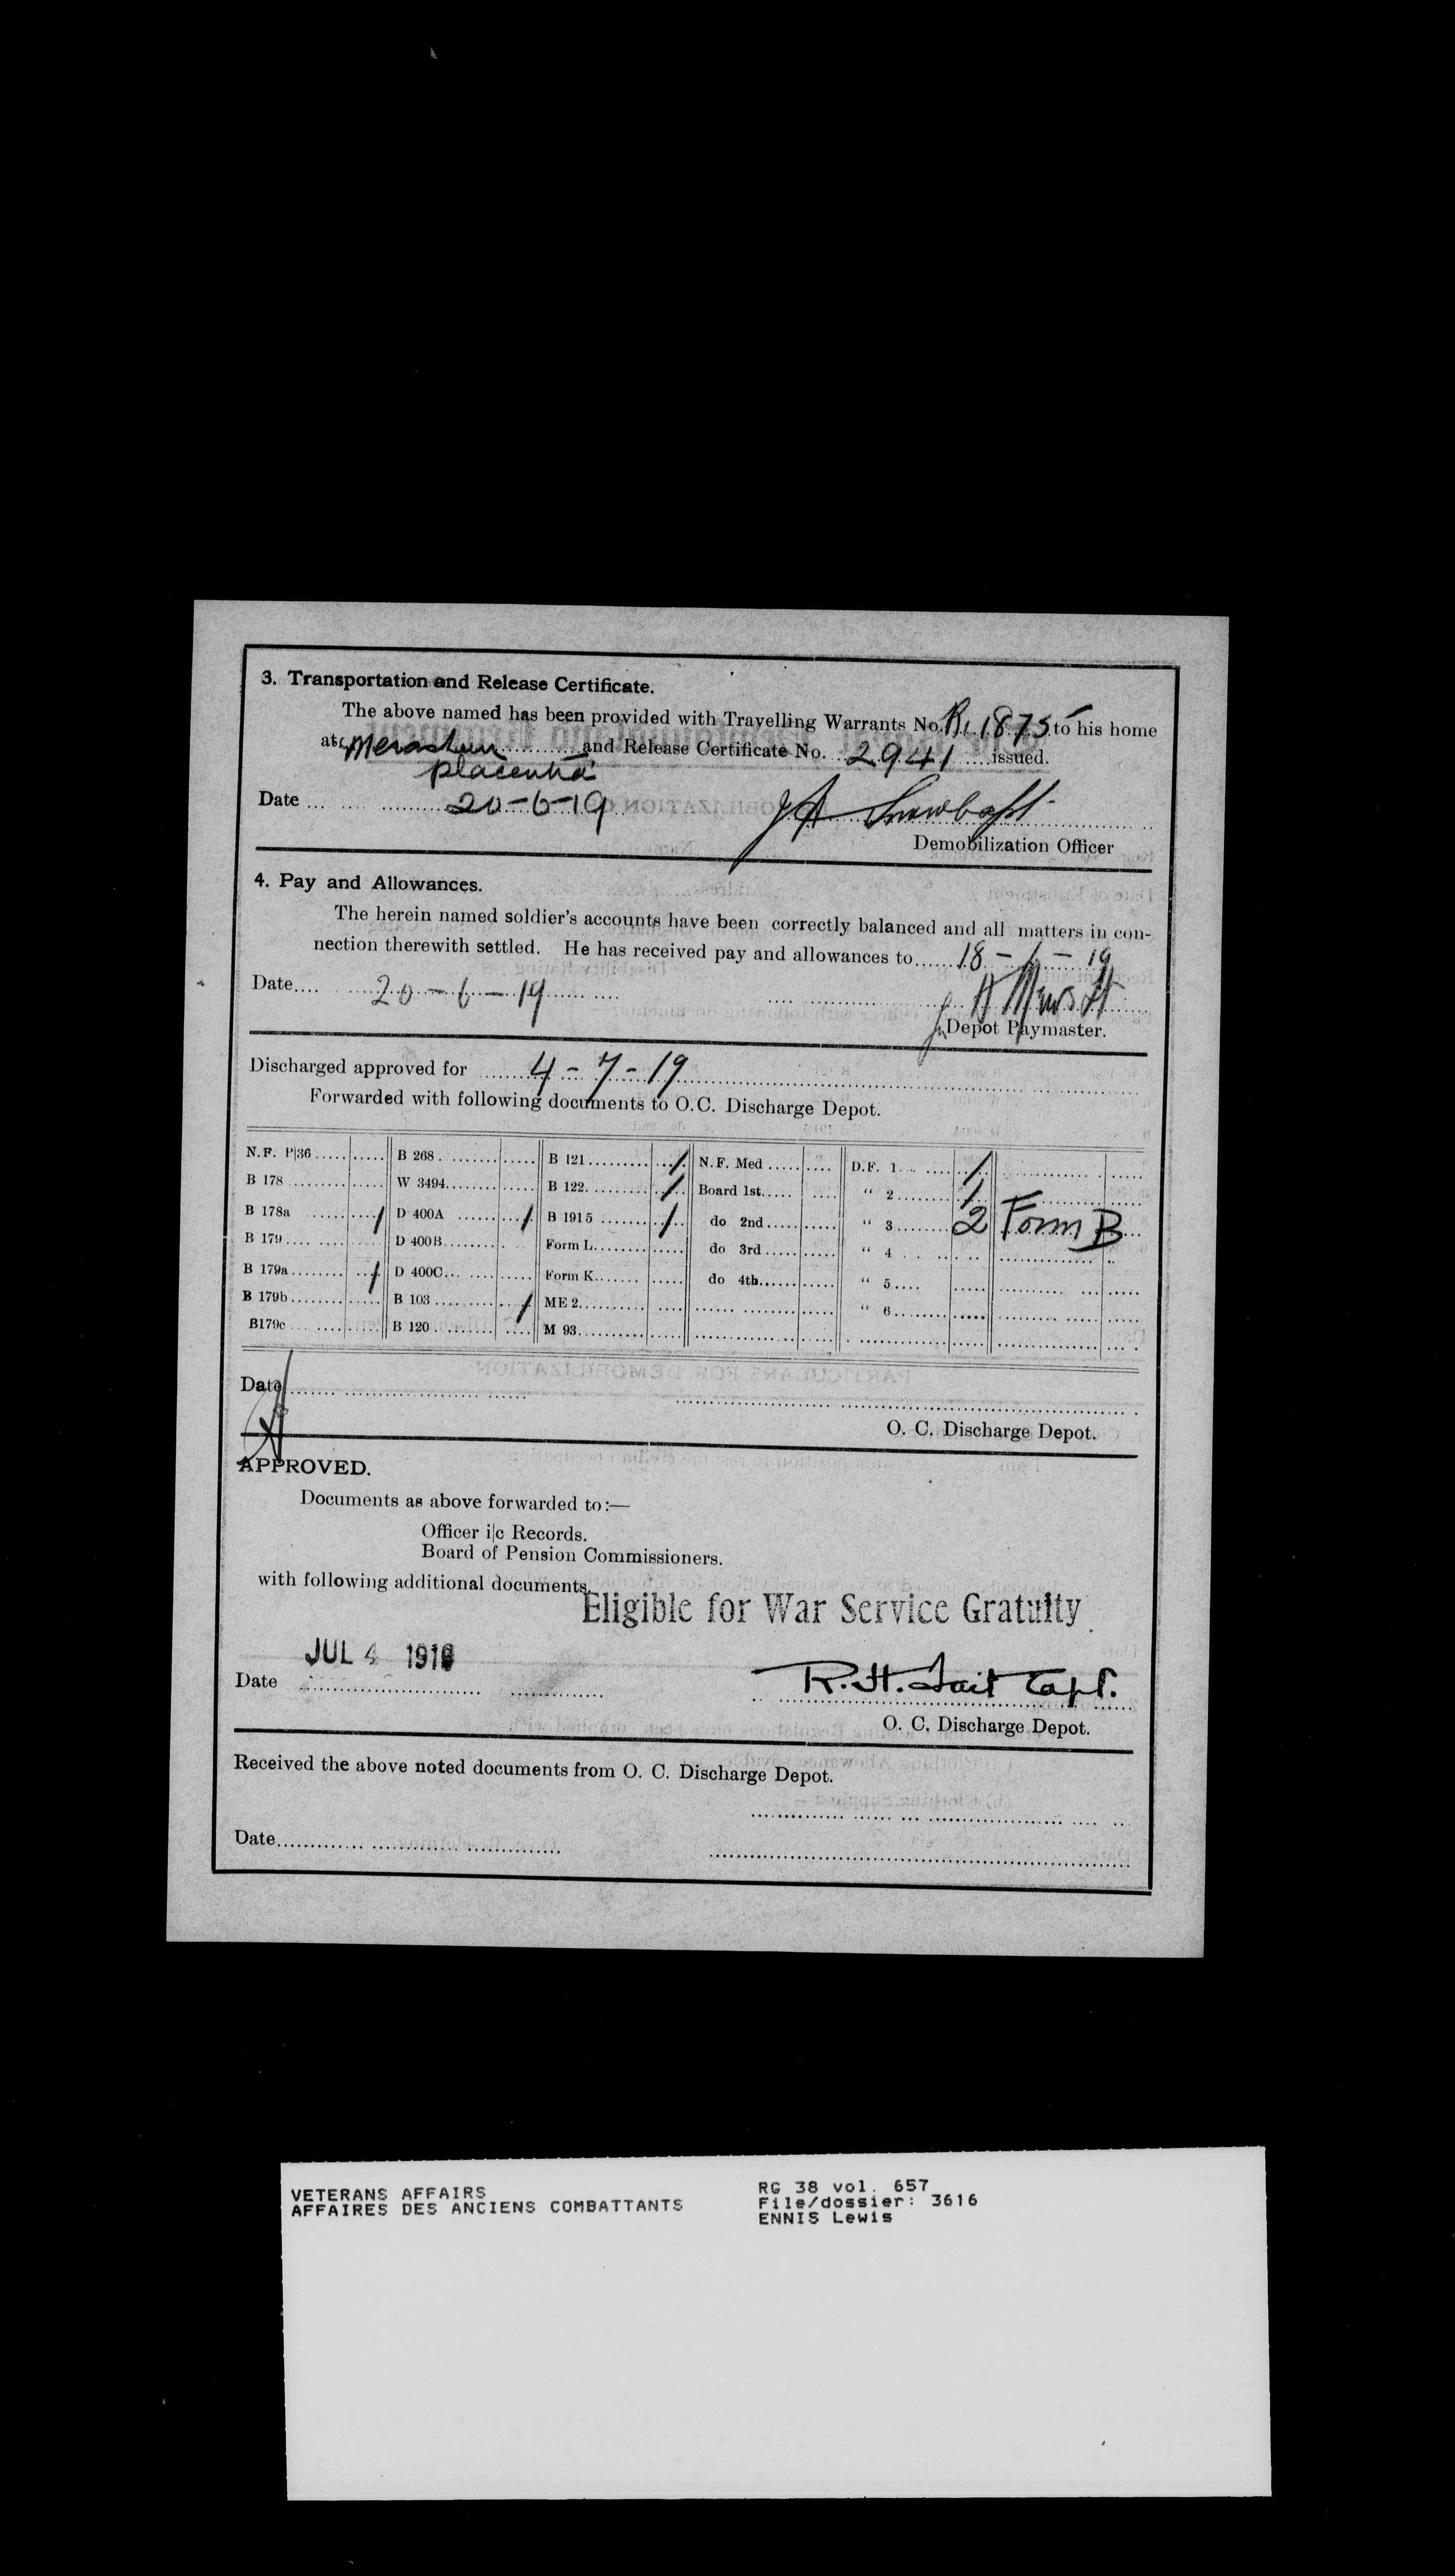 3. Transportation and Release Certificate.
The above named has been provided with Travelling Warrants No. R. 1875 to his home
at Merasheen and Release Certificate No. 2941 issued.
Placentia
Date 20-6-19
Demobilization Officer
4. Pay and Allowances.
The herein named soldier's accounts have been correctly balanced and all matters in con-
nection therewith settled. He has received pay and allowances to 18-6-19
Date 20-6-19
Depot Paymaster.
Discharged approved for 4-7-19
Forwarded with following documents to O.C. Discharge Depot.
N.F. P|36 B 268 B 121 / N.F. Med D.F. 1 /
B 178 W 3494 B 122 / Board 1st " 2 /
B 178a / D 400A / B 1915 / do 2nd " 3 2 Form B
B 179 D 400B Form L do 3rd " 4
B 179a / D 400C Form K do 4th " 5
B 179b B 103 / ME 2 " 6
B179c B 120 M 93
Date
O. C. Discharge Depot.
APPROVED.
Documents as above forwarded to:—
Officer i|c Records.
Board of Pension Commissioners.
with following additional documents.
Eligible for War Service Gratuity
JUL 4 1919
Date R.H. Tait Capt.
O. C. Discharge Depot.
Received the above noted documents from O. C. Discharge Depot.
Date
VETERANS AFFAIRS
AFFAIRES DES ANCIENS COMBATTANTS
RG 38 vol. 657
File/dossier: 3616
ENNIS Lewis